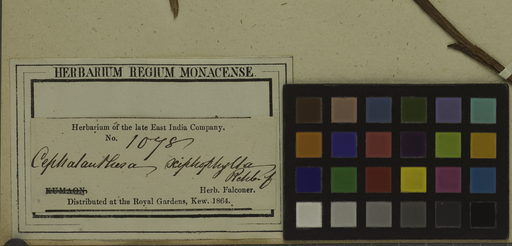 HERBARIUM REGIUM MONACENSE.
Herbarium of the late East India Company.
No. 1078
Cephalanthera xiphophylla
Rchb. f
KUMAON. Herb. Falconer.
Distributed at the Royal Gardens, Kew. 1864.